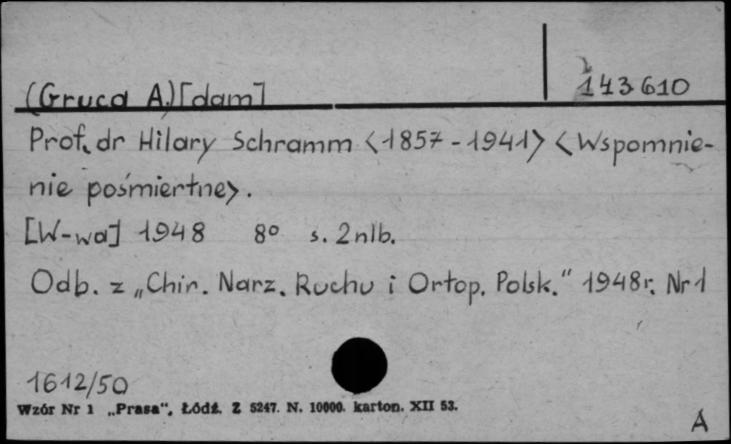 143610
(Gruca A.)[dam]
Prof. dr Hilary Schramm <1857-1941> <Wspomnie-
nie pośmiertne>.
[W-wa] 1948 8° s. 2nlb.
Odb. z „Chir. Narz. Ruchu i Ortop. Polsk.“ 1948r. Nr 1
1612/50
Wzór Nr 1 „Prasa“, Łódź. Z 5247. N. 10000. karton. XII 53.
A